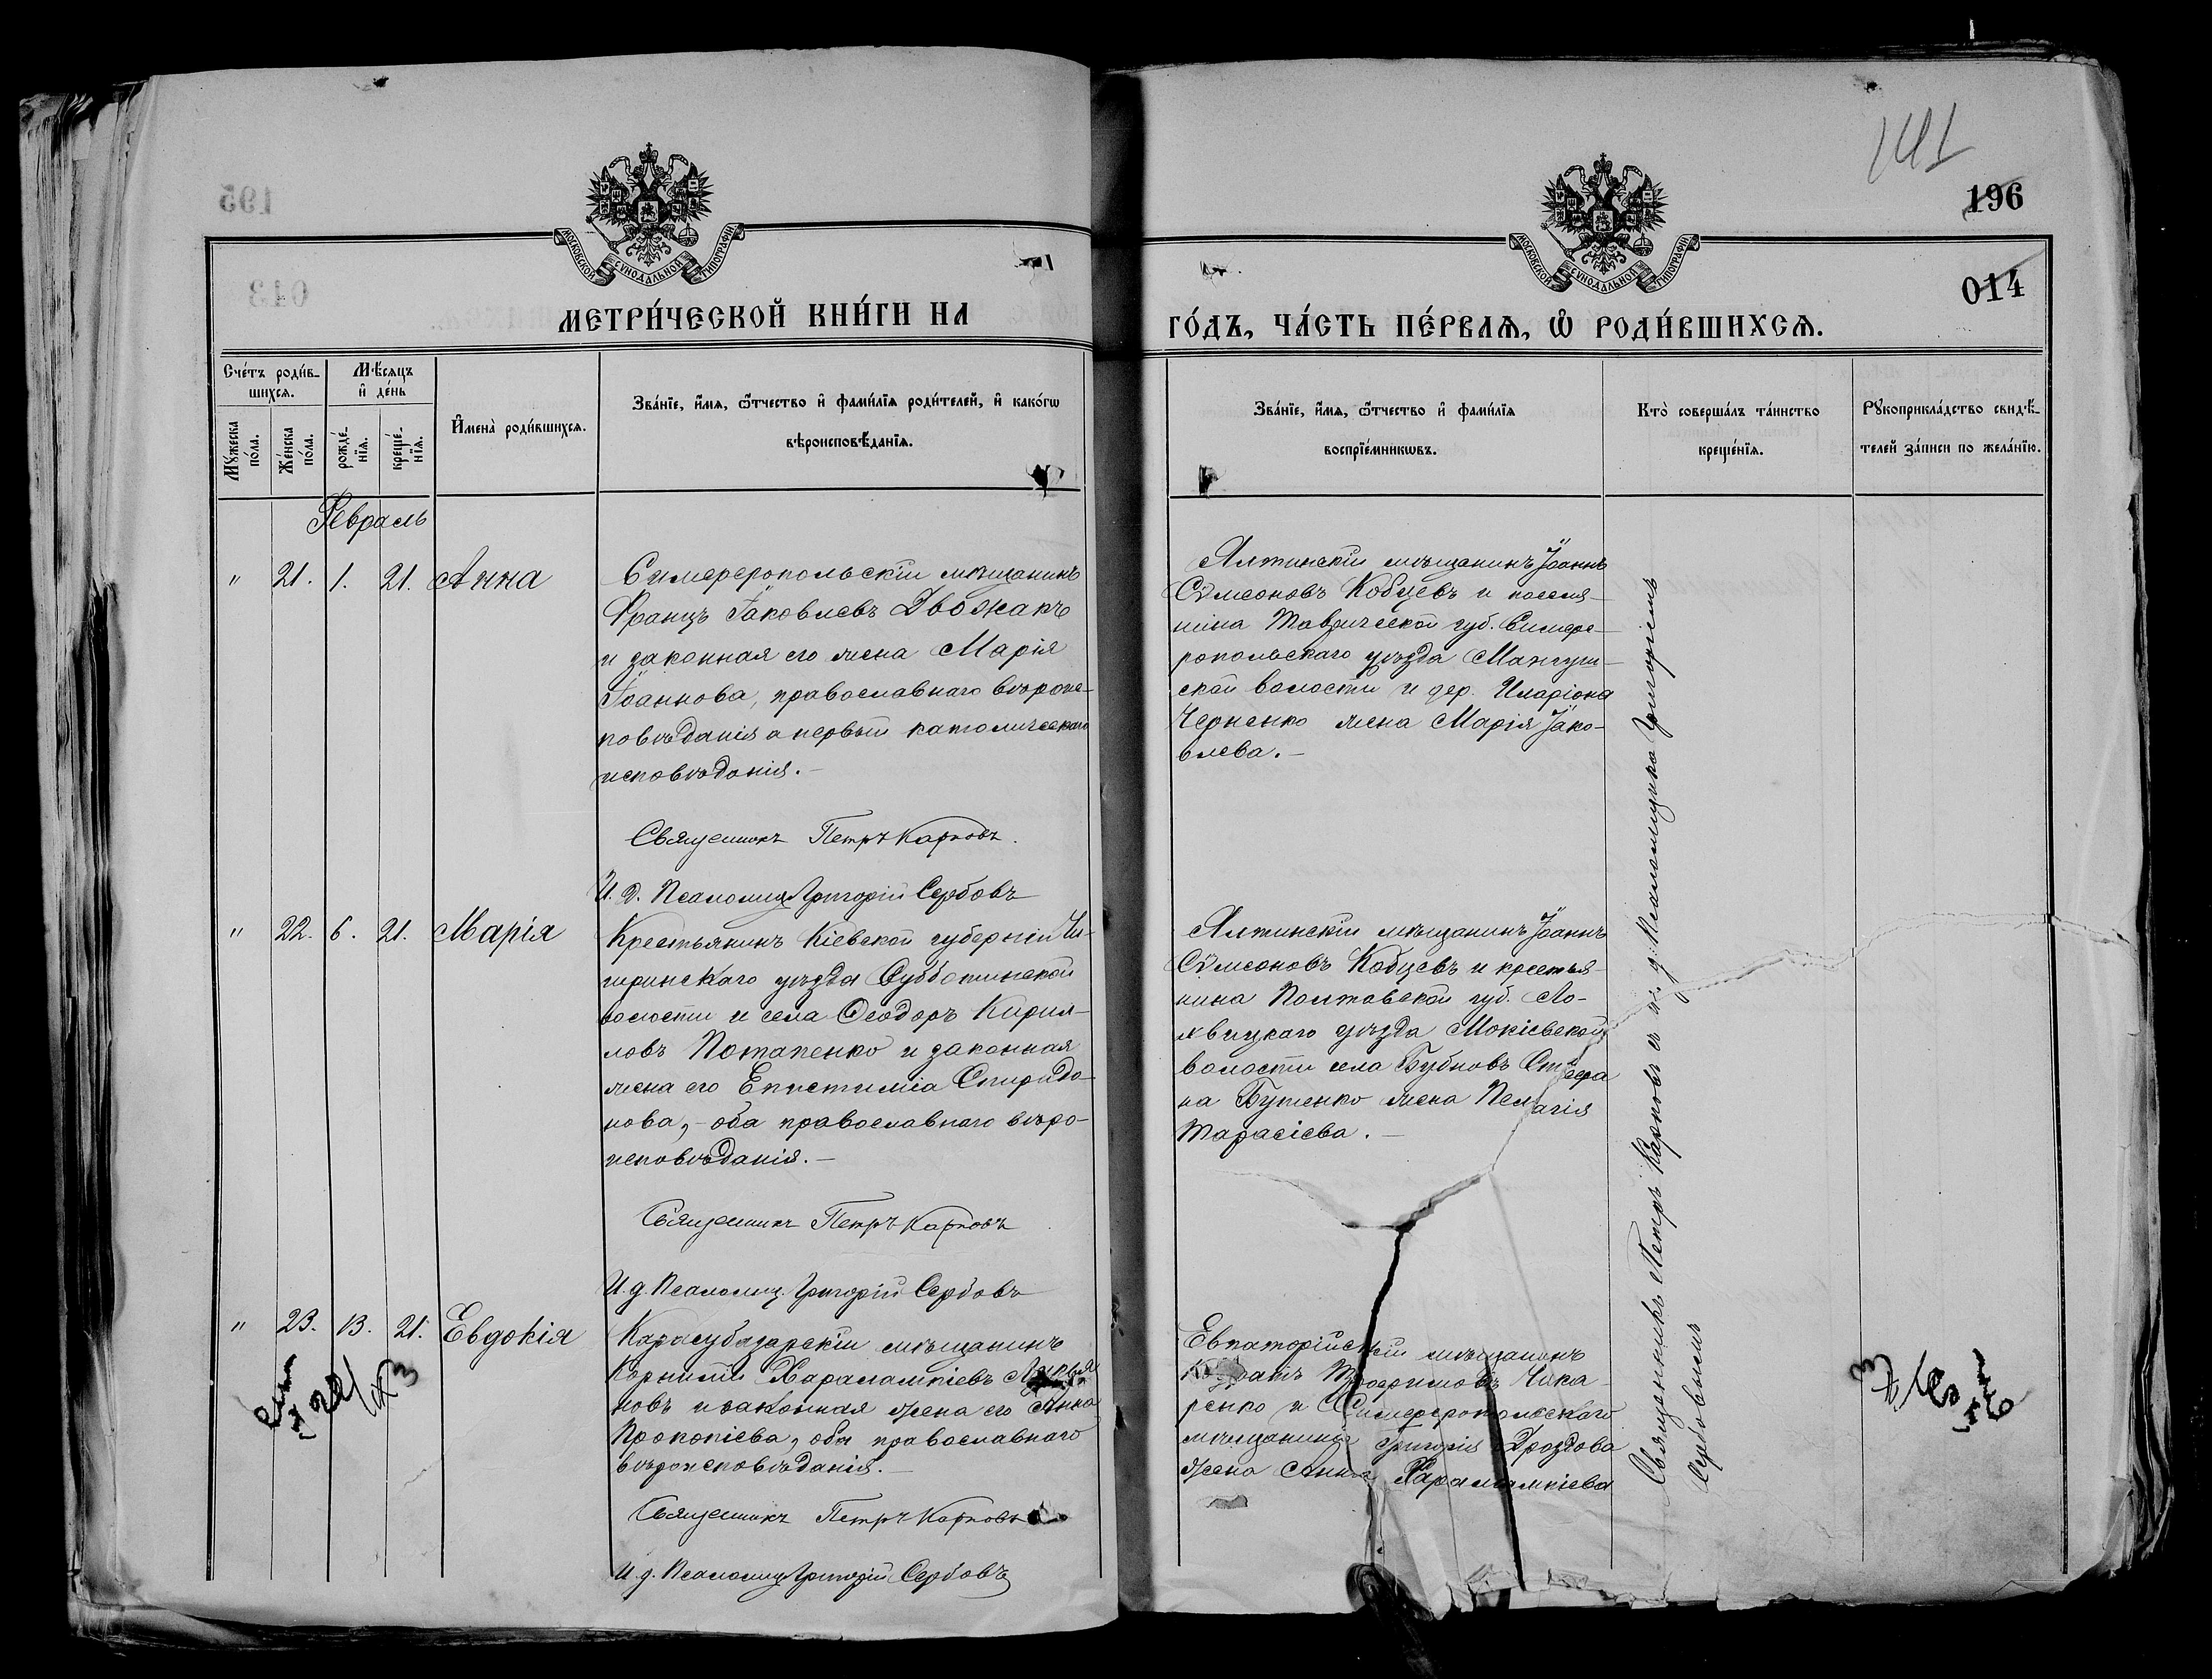 141
196
014
МОСКОВСКОЙ СУНОДАЛЬНОЙ ТИПОГРАФІИ
МОСКОВСКОЙ СУНОДАЛЬНОЙ ТИПОГРАФІИ
МЕТРИ́ЧЕСКОЙ КНИ́ГИ НА
ГО́ДЪ, ЧА́СТЬ ПЕ́РВАѦ, Ѽ РОДИ́ВШИХСѦ.
Сче́тъ роди́в-
шихсѧ.
Мꙋ́жеска
по́ла.
Же́нска
по́ла.
Мѣ́сяцъ
и҆ де́нь
рожде́-
нїѧ.
креще́-
нїѧ.
И҆мена̀ роди́вшихсѧ.
Зва́нїе, и҆́мѧ, ѻ҆́тчество и҆ фами́лїѧ роди́телей, и҆ како́гѡ
вѣроисповѣ́данїѧ.
Зва́нїе, и҆́мѧ, ѻ҆́тчество и҆ фами́лїѧ
воспрїе́мникѡвъ.
Кто̀ соверша́лъ та́инство
креще́нїѧ.
Рꙋкоприкла́дство свидѣ́-
телей за́писи по жела́нїю.
Февраль
" 21. 1. 21. Анна
Симферопольскій мѣщанинъ
Францъ Іаковлевъ Двожакъ
и законная его жена Марія
Іоаннова, православнаго вѣроис-
повѣданія а первый католическаго
исповѣданія.—
Священникъ Петръ Карповъ.
И. д. Псаломщ. Григорій Сербовъ
Ялтинскій мѣщанинъ Іоаннъ
Сѵмеоновъ Кобцевъ и поселя-
нина Таврической губ. Симфе-
ропольскаго уѣзда Мангуш-
ской волости и дер. Иларіона
Черненко жена Марія Іако-
влева.—
" 22. 6. 21. Марія
Крестьянинъ Кіевской губерніи Чи-
гиринскаго уѣзда Субботинской
волости и села Ѳеодоръ Кирил-
ловъ Потапенко и законная
жена его Епистимія Спиридо-
нова,- оба православнаго вѣро-
исповѣданія.—
Священникъ Петръ Карповъ
И. д. Псаломщ. Григорій Сербовъ
Ялтинскій мѣщанинъ Іоаннъ
Сѵмеоновъ Кобцевъ и крестья-
нина Полтавской губ. Ло-
хвицкаго уѣзда Мокіевской
волости села Бубновъ Стефа
на Бутенко жена Пелагія
Тарасіева.—
" 23. 13. 21. Евдокія
Карасубазарскій мѣщанинъ
Корнилій Харалампіевъ Лукья
новъ и законная жена его Анна
Прокопіева, оба православнаго
вѣроисповѣданія.—
Священникъ Петръ Карповъ
И. д. Псаломщ. Григорій Сербовъ
Евпаторійскій мѣщанинъ
Трофимовъ Чака-
ренко и Симферопольскаго
мѣщанина Григорія Дроздова
жена Анна Харалампіева
Священникъ Петръ Карповъ съ и. д. Псаломщика Григоріемъ
Сербовымъ